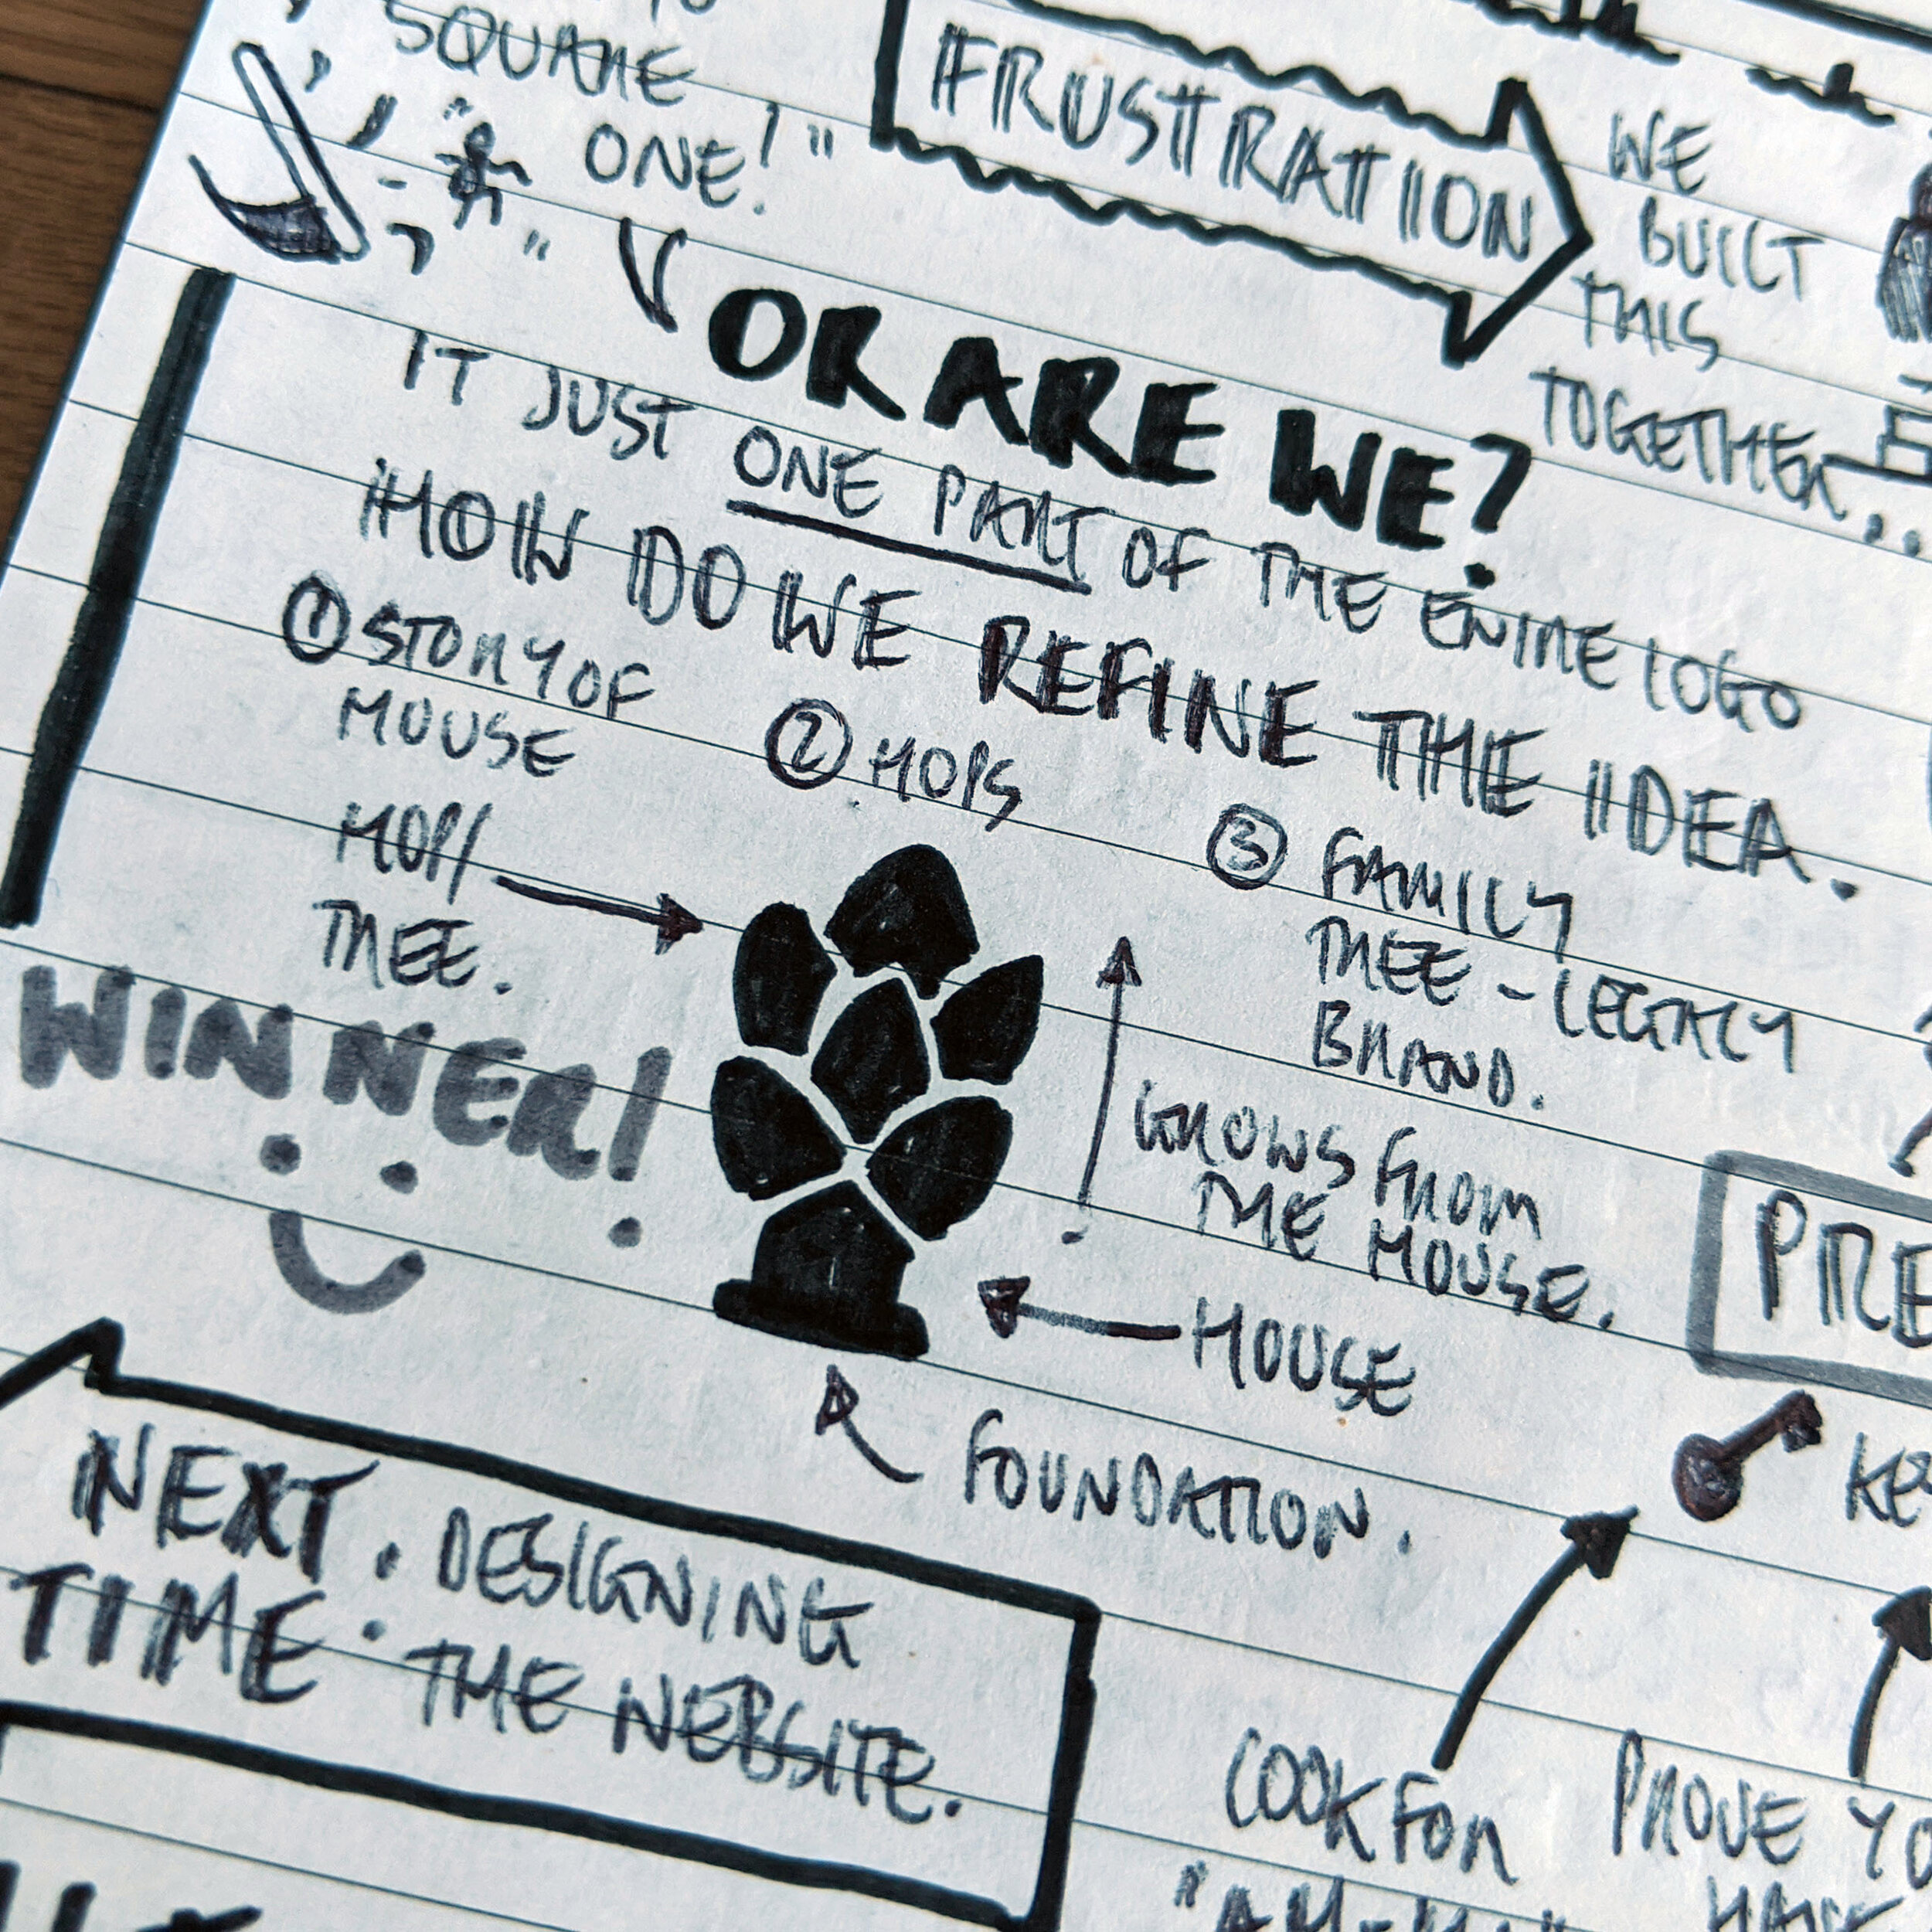 SQUARE
ONE!"
FRUSTRATION
WE
BUILT
THIS
TOGETHER...
OR ARE WE?
IT JUST ONE PART OF THE ENTIRE LOGO
HOW DO WE REFINE THE IDEA.
① STORY OF
HOUSE
② HOPS
③ FAMILY
TREE - LEGACY
BRAND.
HOP/
TREE.
WINNER!
GROWS FROM
THE HOUSE.
HOUSE
FOUNDATION.
PRE
KE
NEXT : DESIGNING
TIME THE WEBSITE.
LOOK FOR
PROVE YO